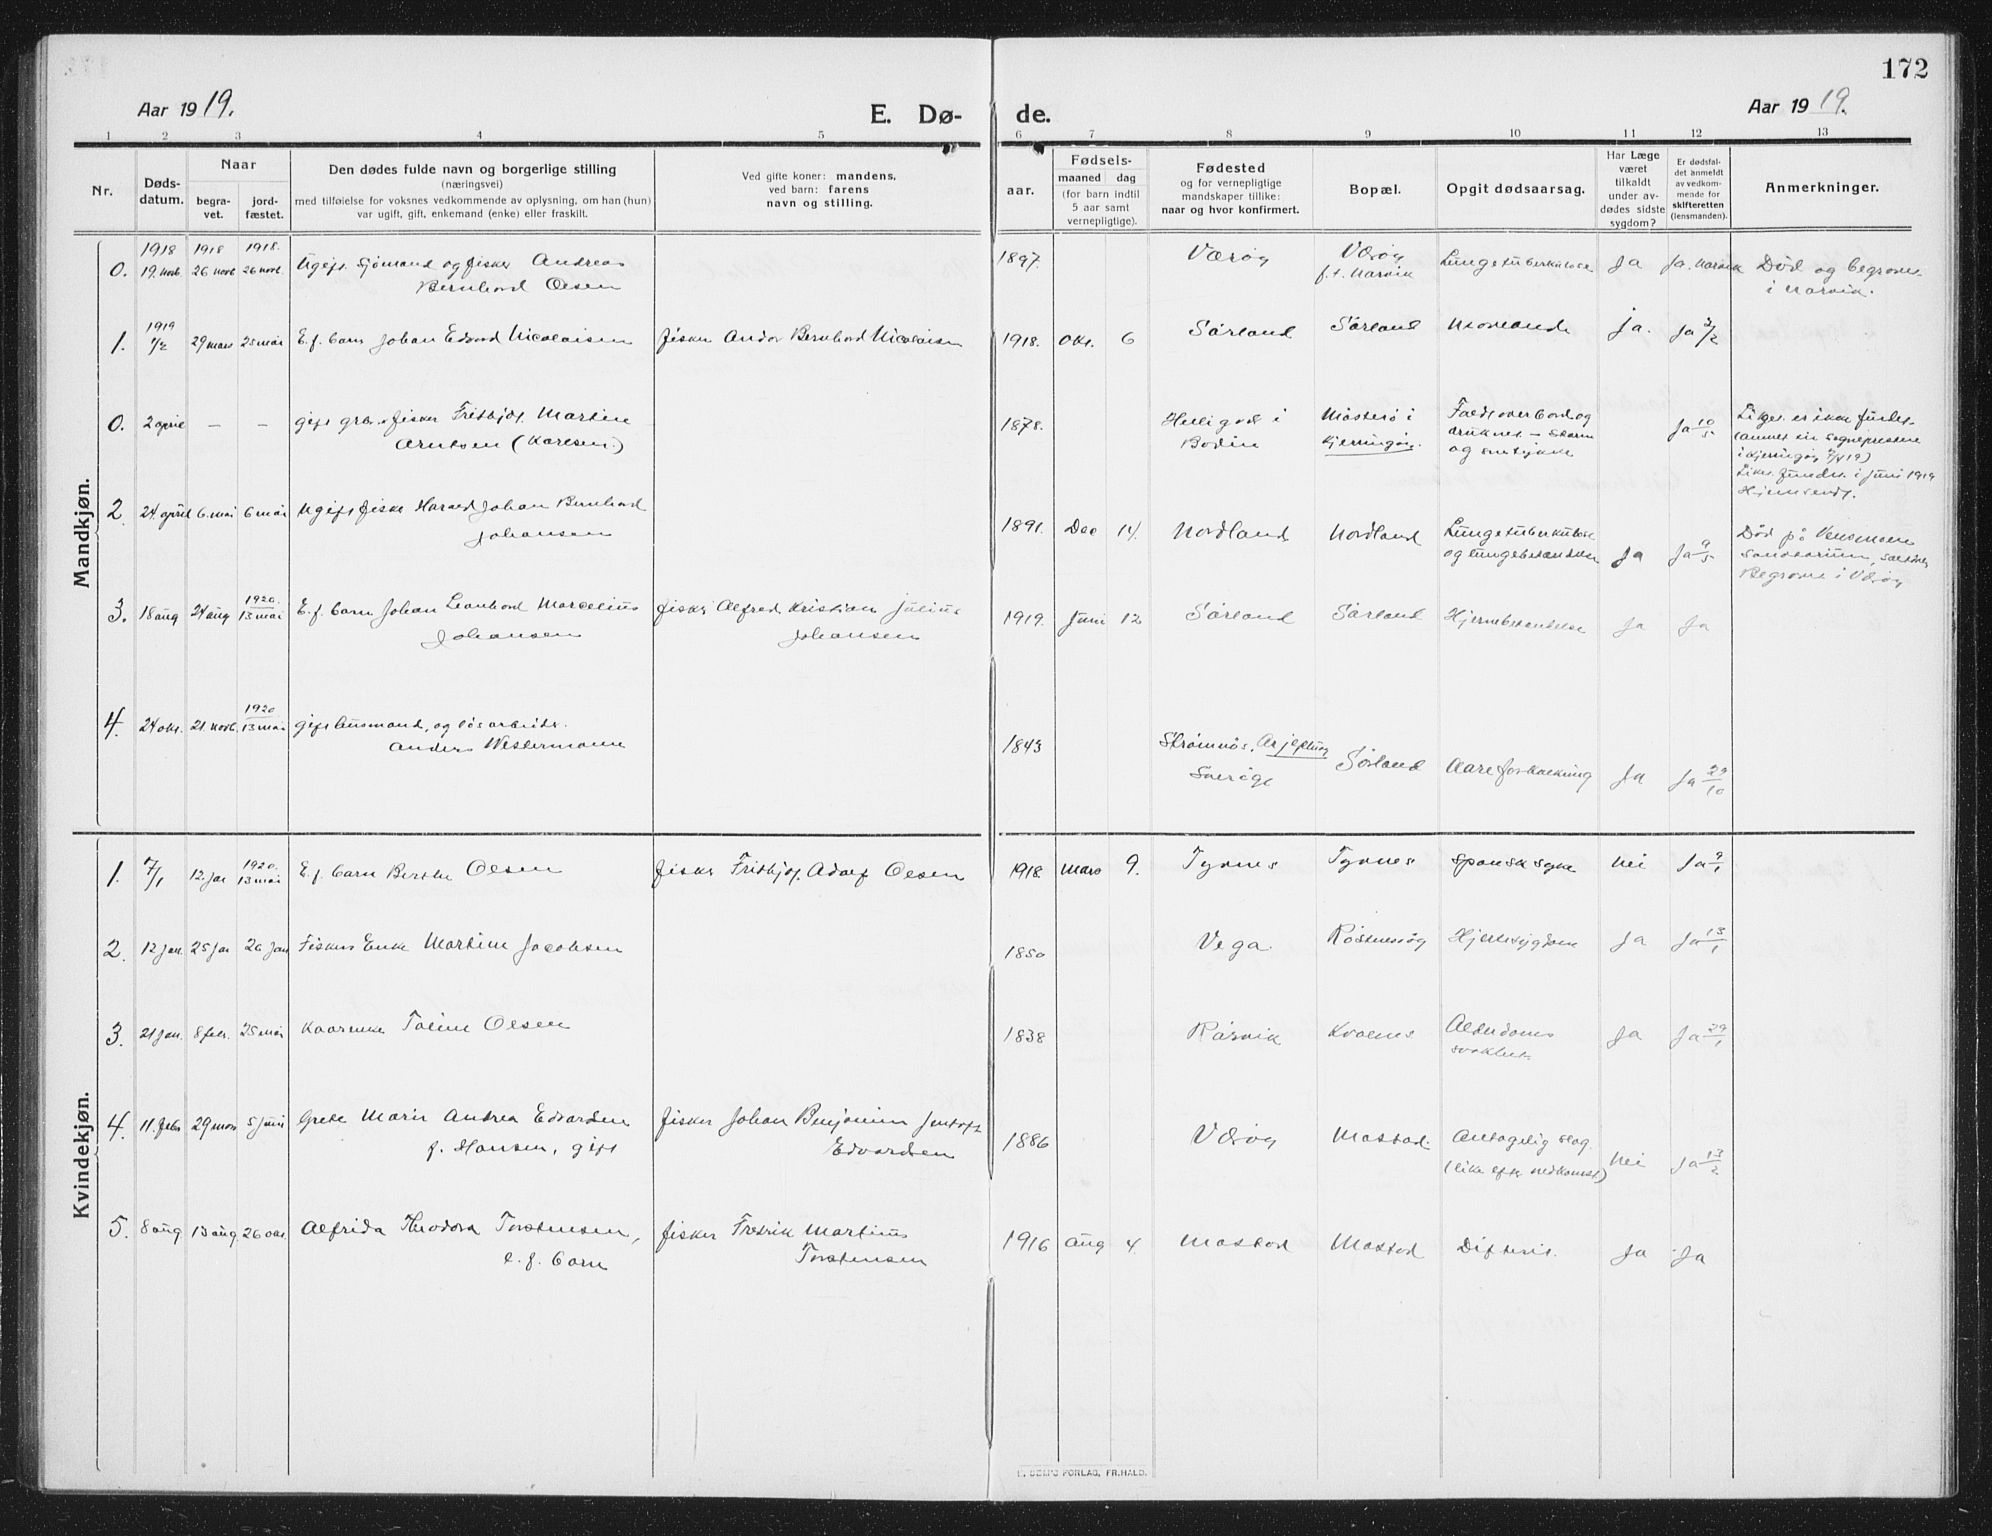 172
Aar 1919.
E. Dø-
de.
Aar 1919.
1 2 3 4 5 6 7 8 9 10 11 12 13
Nr.
Døds-
datum.
Naar
begra-
vet.
jord-
fæstet.
Den dødes fulde navn og borgerlige stilling
(næringsvei)
med tilføielse for voksnes vedkommende av oplysning, om han (hun)
var ugift, gift, enkemand (enke) eller fraskilt.
Ved gifte koner: mandens,
ved barn: farens
navn og stilling.
aar.
Fødsels-
maaned dag
(for barn indtil
5 aar samt
vernepligtige).
Fødested
og for vernepligtige
mandskaper tillike:
naar og hvor konfirmert.
Bopæl.
Opgit dødsaarsag.
Har Læge
været
tilkaldt
under av-
dødes sidste
sygdom?
Er dødsfal-
det anmeldt
av vedkom-
mende for
skifteretten
(lensmanden).
Anmerkninger.
Mandkjøn.
0. 1918 19. novb. 1918 26 novb 1918. 26 novb. Ugift Sjømand og fisker Andreas
Bernhard Olsen
1897. Værøy Værøy
f.t. Narvik Lungetuberkulose Ja Ja. Narvik Død og begravet
i Narvik.
1. 1919 1/2 29 mars 25 mai E. f. barn Johan Edvard Nicolaisen fisker Andor Bernhard Nicolaisen 1918. Okt. 6 Sørland Sørland ja. Ja 3/2
0. 2 april - - gift fisker Fritjof Martin
Arntsen (Karlsen)
1878. i
Bodin i
Kjerringøy. Faldt overbord og
druknet - storm
og snetykke Ja 10/5 Liket er ikke fundet
i Kjerringøy
Liket fundet i juni 1919
Hjemsendt.
2. 24 april 6. mai 6 mai Ugift fisker Harald Johan Bernhard
Johansen
1891. Dec 14. Nordland Nordland Lungetuberkulose
og lungebetændelse Ja Ja 9/5 Død på Vensmoen
Sanatorium,
Begravet i Værøy
3. 18 aug 24 aug 1920 13 mai E. f. barn Johan Leonhard Marcelius
Johansen fisker Alfred Kristian Julius
Johansen 1919. Juni 12 Sørland Sørland Hjernebetændelse Ja Ja
4. 24 okt. 21. novb. 1920 13 mai gift husmand, og løsarbeider
Anders Westermann
1843 Strømnes, Arjeplung
Sverige Sørland Aareforkalkning Ja Ja 29/10
Kvindekjøn.
1. 7/1 12. jan 1920. 13 mai E. f. barn Berthe Olsen fisker Fritjof Adolf Olsen 1918. Mars 9. Tyvnes Tyvnes Spansk syke Nei Ja 9/1
2. 12 jan. 25 jan 26 jan Fiskers Enke Martine Jacobsen 1850 Vega. Røstnesvåg Hjertesygdom Ja Ja 13/1
3. 21 jan. 8 febr. 25 mai Olsen 1838 Rørvik Kvalnes Alderdoms
svakhet. Ja Ja 29/1
4. 11. febr 29 mars 5 juni Grete Marie Andrea Edvardsen
f. Hansen, gift fisker Johan Benjamin Jentoft
Edvardsen 1886 Værøy Mostad. Antagelig slag.
(like efter nedkomst) Nei Ja 13/2
5. 8 aug 13 aug. 26 okt. Alfrida Theodora Torstensen,
e. f. barn fisker Fredrik Martinus
Torstensen 1916 Aug 4. Mostad Mostad Difterit. Ja Ja
FORLAG, FR.HALD.